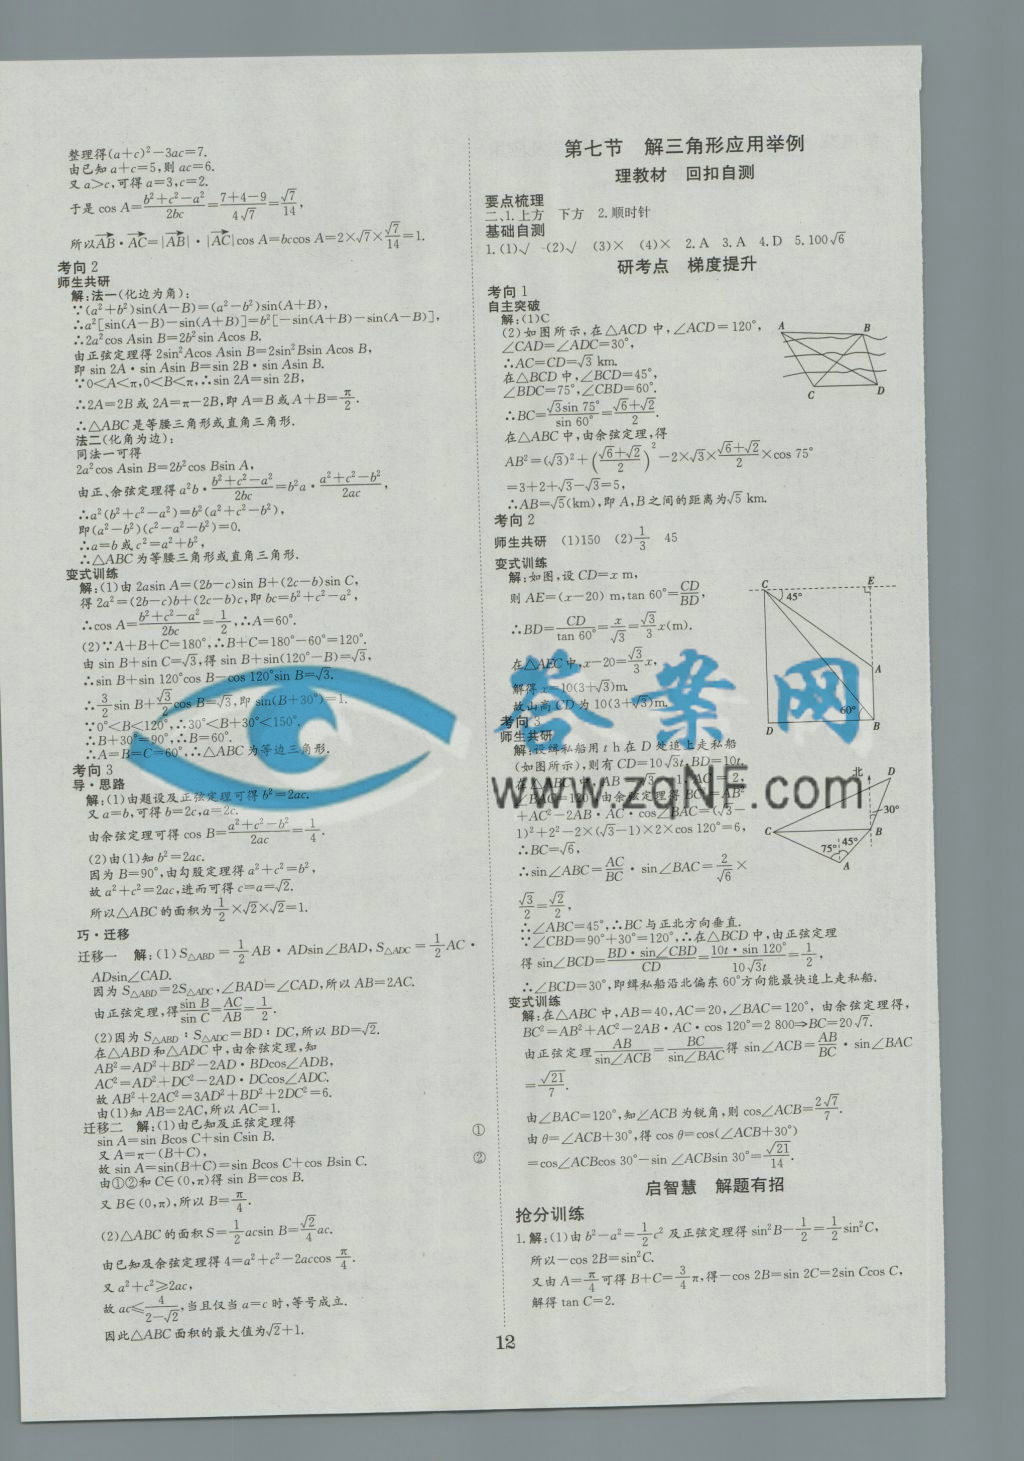 整理得(a+c)²-3ac=7.
由已知a+c=5,则ac=6.
又a>c,可得a=3,c=2.
于是cos A=(b²+c²-a²)/2bc=(7+4-9)/4√7=√7/14,
所以AB·AC=|AB|·|AC|cos A=bccos A=2×√7×√7/14=1.
考向2
师生共研
解:法一(化边为角):
∵(a²+b²)sin(A-B)=(a²-b²)sin(A+B),
∴a²[sin(A-B)-sin(A+B)]=b²[-sin(A+B)-sin(A-B)],
∴2a²cos Asin B=2b²sin Acos B.
由正弦定理得2sin²Acos Asin B=2sin²Bsin Acos B,
即sin 2A·sin Asin B=sin 2B·sin Asin B.
∵0<A<π,0<B<π,∴sin 2A=sin 2B,
∴2A=2B或2A=π-2B,即A=B或A+B=π/2.
∴△ABC是等腰三角形或直角三角形.
法二(化角为边):
同法一可得
2a²cos Asin B=2b²cos Bsin A,
由正、余弦定理得a²b·(b²+c²-a²)/2bc=b²a·(a²+c²-b²)/2ac,
∴a²(b²+c²-a²)=b²(a²+c²-b²),
即(a²-b²)(c²-a²-b²)=0.
∴a=b或c²=a²+b²,
∴△ABC为等腰三角形或直角三角形.
变式训练
解:(1)由2asin A=(2b-c)sin B+(2c-b)sin C,
得2a²=(2b-c)b+(2c-b)c,即bc=b²+c²-a²,
∴cos A=(b²+c²-a²)/2bc=1/2,∴A=60°.
(2)∵A+B+C=180°,∴B+C=180°-60°=120°.
由sin B+sin C=√3,得sin B+sin(120°-B)=√3,
∴sin B+sin 120°cos B-cos 120°sin B=√3.
∴3/2 sin B+√3/2 cos B=√3,即sin(B+30°)=1.
∵0°<B<120°,∴30°<B+30°<150°.
∴B+30°=90°,∴B=60°.
∴A=B=C=60°,∴△ABC为等边三角形.
考向3
导·思路
解:(1)由题设及正弦定理可得b²=2ac.
又a=b,可得b=2c,a=2c.
由余弦定理可得cos B=(a²+c²-b²)/2ac=1/4.
(2)由(1)知b²=2ac.
因为B=90°,由勾股定理得a²+c²=b²,
故a²+c²=2ac,进而可得c=a=√2.
所以△ABC的面积为1/2×√2×√2=1.
巧·迁移
迁移一 解:(1)S△ABD=1/2 AB·ADsin∠BAD,S△ADC=1/2 AC·
ADsin∠CAD.
因为S△ABD=2S△ADC,∠BAD=∠CAD,所以AB=2AC.
由正弦定理,得sin B/sin C=AC/AB=1/2.
(2)因为S△ABD:S△ADC=BD:DC,所以BD=√2.
在△ABD和△ADC中,由余弦定理,知
AB²=AD²+BD²-2AD·BDcos∠ADB,
AC²=AD²+DC²-2AD·DCcos∠ADC.
故AB²+2AC²=3AD²+BD²+2DC²=6.
由(1)知AB=2AC,所以AC=1.
迁移二 解:(1)由已知及正弦定理得
sin A=sin Bcos C+sin Csin B. ①
又A=π-(B+C),
故sin A=sin(B+C)=sin Bcos C+cos Bsin C. ②
由①②和C∈(0,π)得sin B=cos B.
又B∈(0,π),所以B=π/4.
(2)△ABC的面积S=1/2 acsin B=√2/4 ac.
由已知及余弦定理得4=a²+c²-2accos π/4.
又a²+c²≥2ac,
故ac≤4/(2-√2),当且仅当a=c时,等号成立.
因此△ABC面积的最大值为√2+1.
第七节 解三角形应用举例
理教材 回扣自测
要点梳理
二、1.上方 下方 2.顺时针
基础自测
1.(1)√ (2)√ (3)× (4)× 2.A 3.A 4.D 5.100√6
研考点 梯度提升
考向1
自主突破
解:(1)C
(2)如图所示,在△ACD中,∠ACD=120°,
∠CAD=∠ADC=30°,
∴AC=CD=√3 km.
在△BCD中,∠BCD=45°,
∠BDC=75°,∠CBD=60°.
∴BC=√3sin 75°/sin 60°=(√6+√2)/2.
在△ABC中,由余弦定理,得
AB²=(√3)²+((√6+√2)/2)²-2×√3×(√6+√2)/2×cos 75°
=3+2+√3-√3=5,
∴AB=√5(km),即A,B之间的距离为√5 km.
A B C D
考向2
师生共研 (1)150 (2)1/3 45
变式训练
解:如图,设CD=x m,
则AE=(x-20) m,tan 60°=CD/BD,
∴BD=CD/tan 60°=x/√3=√3/3 x(m).
在△AEC中,x-20=√3/3 x,
解得x=10(3+√3)m.
故山高CD为10(3+√3)m.
C E 45° A 60° D B
考向3
师生共研
解:设缉私船用t h在D处追上走私船
(如图所示),则有CD=10√3t,BD=10t.
在△ABC中,AB=√3-1,AC=2,
∠BAC=120°,由余弦定理得BC²=AB²
+AC²-2AB·AC·cos∠BAC=(√3-
1)²+2²-2×(√3-1)×2×cos 120°=6,
∴BC=√6,
∴sin∠ABC=AC/BC·sin∠BAC=2/√6×
√3/2=√2/2,
∴∠ABC=45°,∴BC与正北方向垂直.
∵∠CBD=90°+30°=120°,∴在△BCD中,由正弦定理
得sin∠BCD=BD·sin∠CBD/CD=10t·sin 120°/10√3t=1/2,
∴∠BCD=30°,即缉私船沿北偏东60°方向能最快追上走私船.
北 D 30° C B 45° 75° A
变式训练
解:在△ABC中,AB=40,AC=20,∠BAC=120°,由余弦定理得,
BC²=AB²+AC²-2AB·AC·cos 120°=2 800⇒BC=20√7.
由正弦定理AB/sin∠ACB=BC/sin∠BAC得sin∠ACB=AB/BC·sin∠BAC
=√21/7.
由∠BAC=120°,知∠ACB为锐角,则cos∠ACB=2√7/7.
由θ=∠ACB+30°,得cos θ=cos(∠ACB+30°)
=cos∠ACBcos 30°-sin∠ACBsin 30°=√21/14.
启智慧 解题有招
抢分训练
1.解:(1)由b²-a²=1/2 c²及正弦定理得sin²B-1/2=1/2 sin²C,
所以-cos 2B=sin²C.
又由A=π/4可得B+C=3/4 π,得-cos 2B=sin 2C=2sin Ccos C,
解得tan C=2.
12
答案网
www.zqNF.com